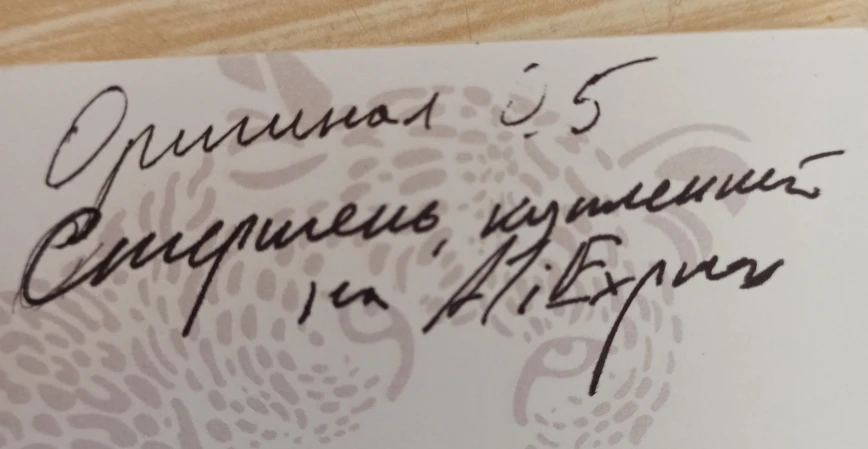 Оригинал 0.5
Стержень, купленный
на AliExpress